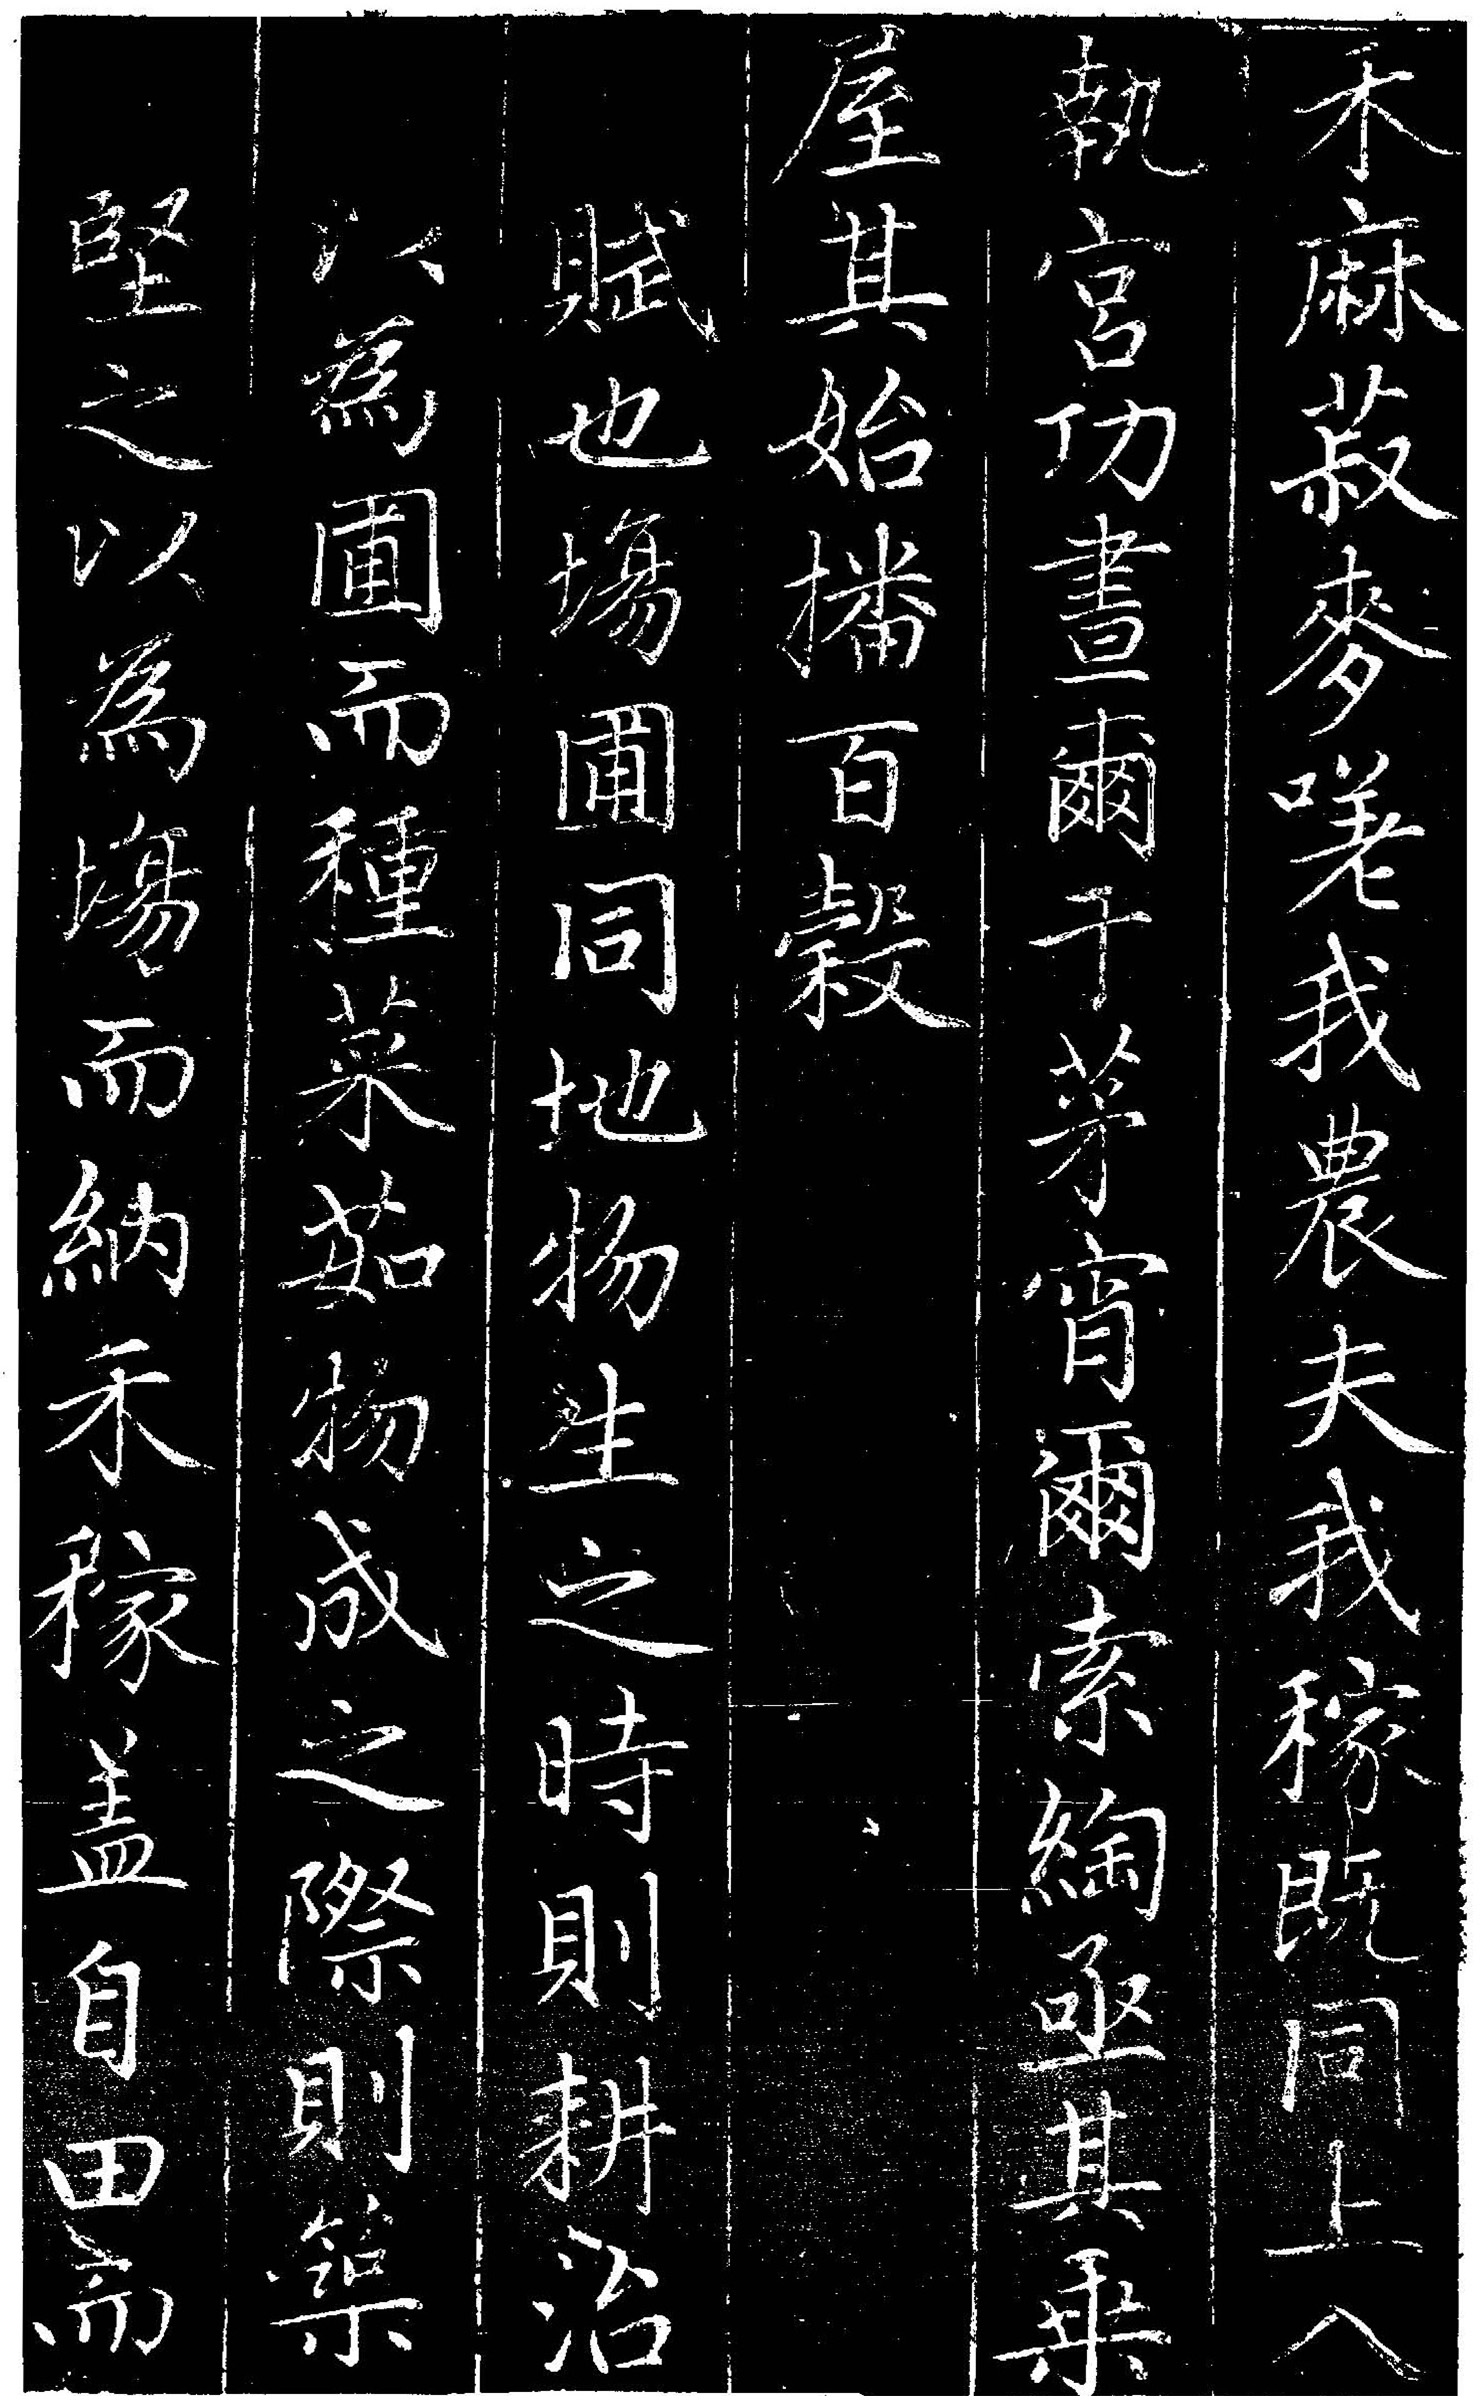 禾麻菽麥嗟我農夫我稼既同上入
執宮功晝爾于茅宵爾索綯亟其乗
屋其始播百穀
賦也場圃同地物生之時則耕治
以為圃而種菜茹物成之際則築
堅之以為場而納禾稼盖自田而